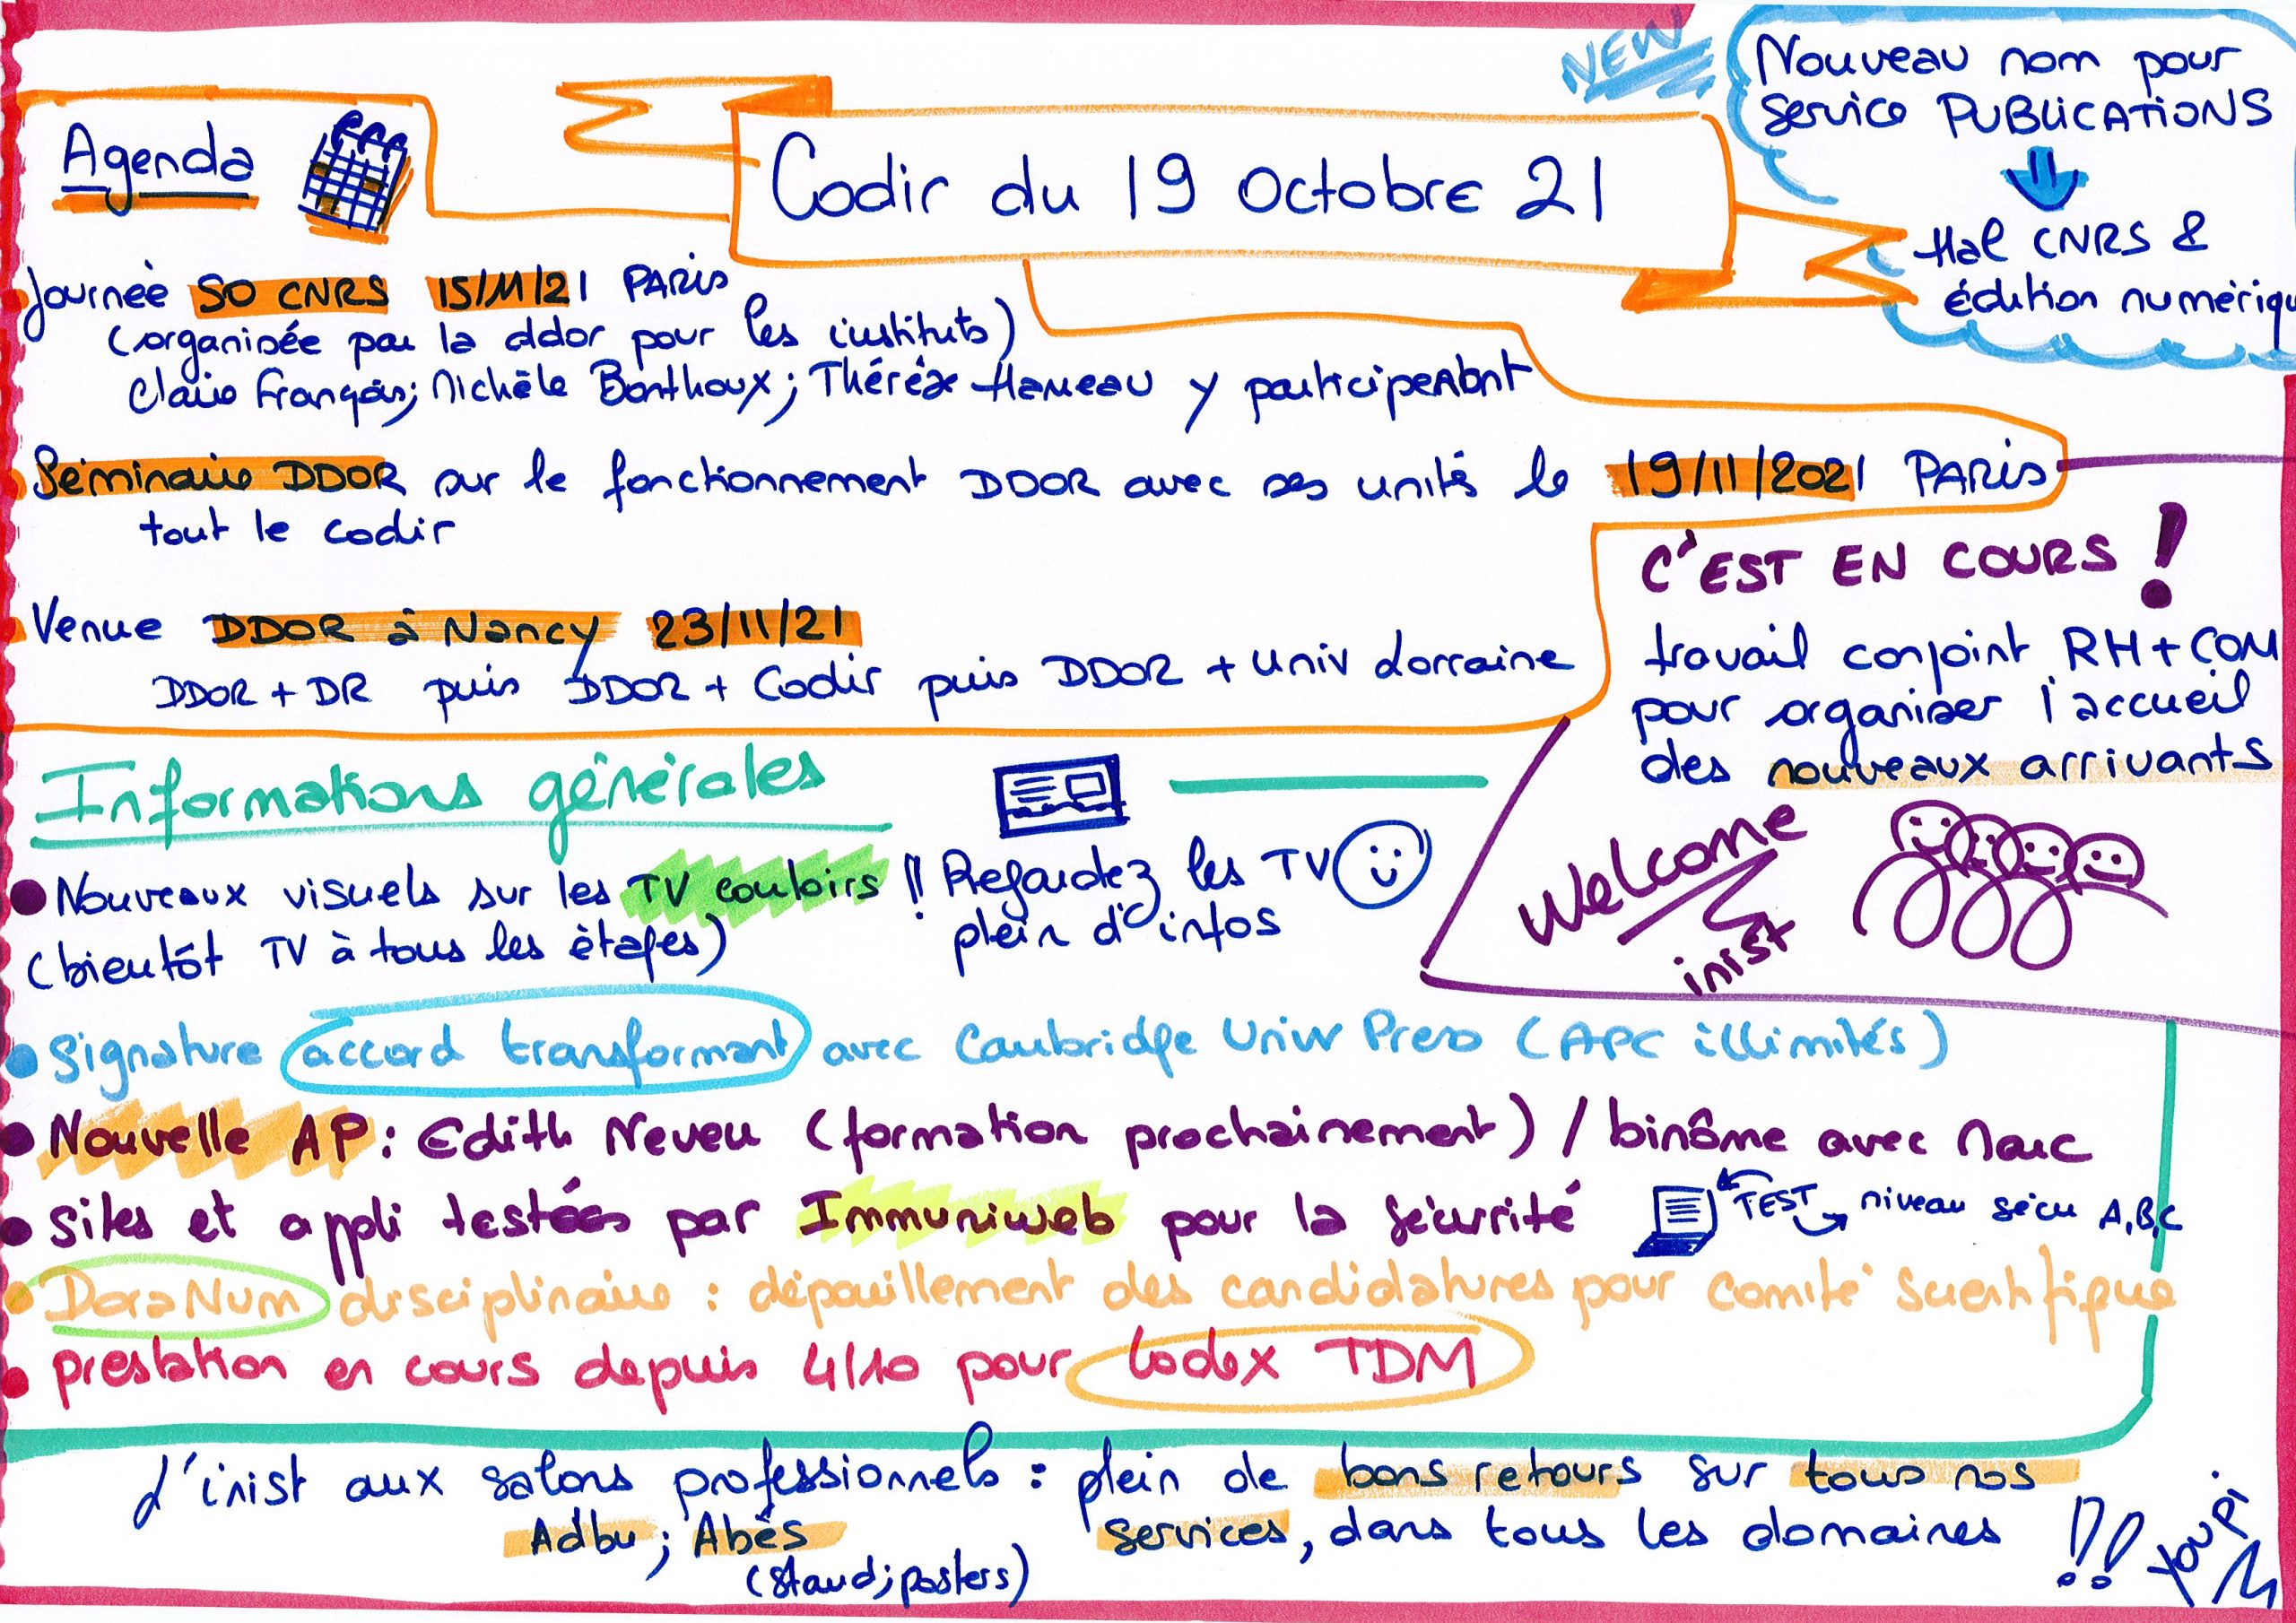 NEW
Nouveau nom pour
service PUBLICATIONS
Hal CNRS &
édition numériqu
Codir du 19 octobre 21
Agenda
Journée SO CNRS 15/11/21 PARIS
(organisée par la ddor pour les instituts)
Claire François; Michèle Bonthoux; Thérèse Hameau y participeront
Séminaire DDOR sur le fonctionnement DDOR avec ses unités le 19/11/2021 PARIS
tout le codir
Venue DDOR à Nancy 23/11/21
DDOR + DR puis DDOR + Codir puis DDOR + univ Lorraine
C'EST EN COURS !
travail conjoint RH + COM
pour organiser l'accueil
des nouveaux arrivants
Welcome
inist
Informations générales
Nouveaux visuels sur les TV couloirs !! Regardez les TV
(bientôt TV à tous les étages) plein d'infos
Signature accord transformant avec Cambridge Univ Press (APC illimités)
Nouvelle AP : Edith Neveu (formation prochainement) / binôme avec Marc
Sites et appli testées par Immuniweb pour la sécurité TEST niveau sécu A,B,C
DoraNum disciplinaire : dépouillement des candidatures pour Comité Scientifique
prestation en cours depuis 4/10 pour Lodex TDM
L'inist aux salons professionnels : plein de bons retours sur tous nos
Adbu ; Abes services, dans tous les domaines !!
(stand; posters)
YOUPI